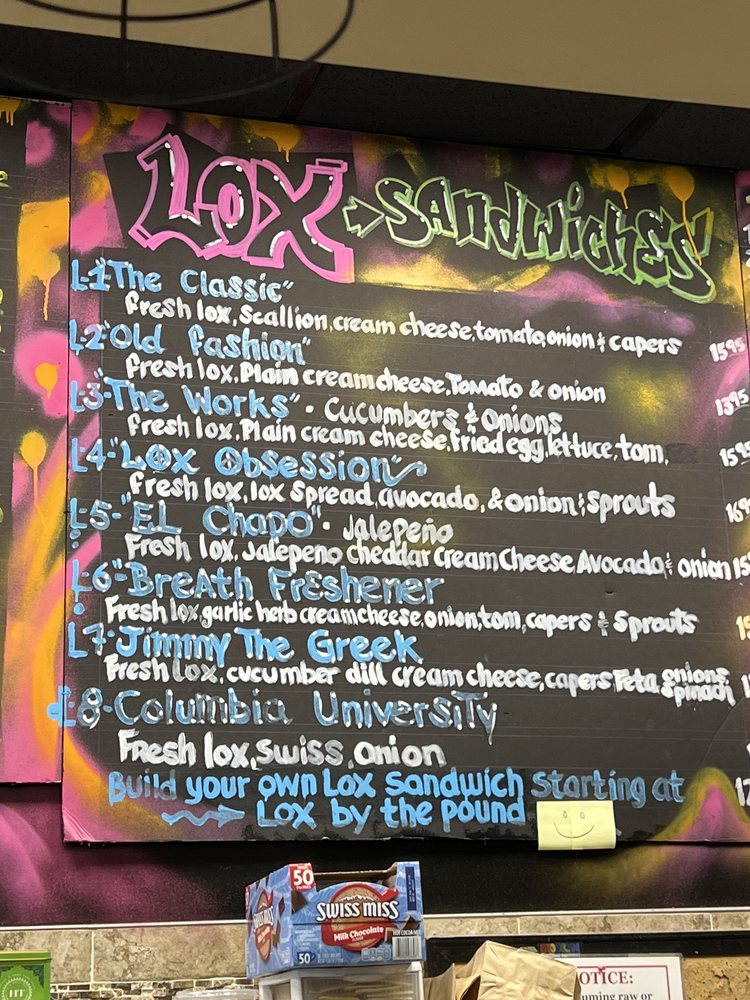 LOX SANDWICHES
L1 "The Classic"
fresh lox, scallion, cream cheese, tomato, onion & capers 1595
L-2 "Old fashion"
fresh lox, Plain cream cheese, Tomato & onion 1395
L-3 "The Works" · Cucumbers & Onions
fresh lox, Plain cream cheese, fried egg, lettuce, tom.
L-4 "Lox Obsession"
fresh lox, lox spread, avocado, & onion & sprouts
L-5- "EL Chapo" · Jalepeño
Fresh lox, Jalapeno cheddar cream Cheese Avocado & onion
L-6 "Breath Freshener
Fresh lox, garlic herb cream cheese, onion, tom, capers & sprouts
L7- Jimmy The Greek
Fresh lox, cucumber dill cream cheese, capers Feta onions spinach
L-8- Columbia University
Fresh lox, swiss, onion
Build your own Lox Sandwich Starting at
Lox by the pound
50
SWISS MISS
Milk Chocolate
50
NOTICE:
raw or